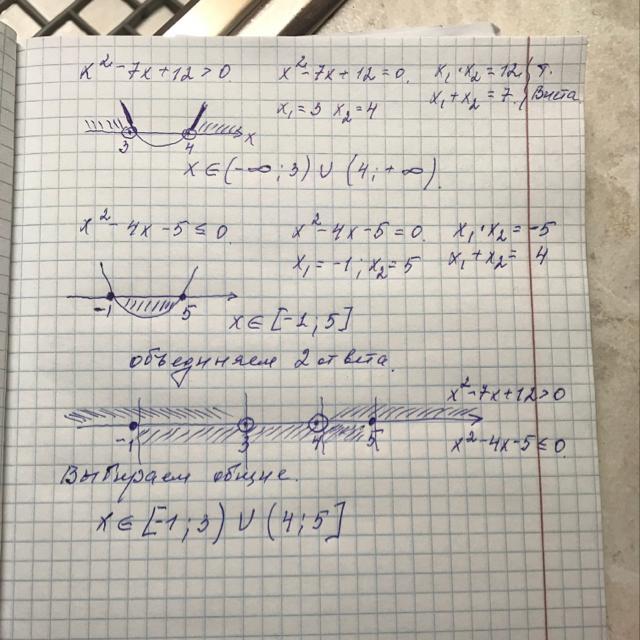 x² - 7x + 12 > 0. x² - 7x + 12 = 0. x₁ · x₂ = 12 } т.
x₁ = 3 x₂ = 4 x₁ + x₂ = 7. } Виета
3 4 x
x ∈ (-∞; 3) ∪ (4; +∞).
x² - 4x - 5 ≤ 0. x² - 4x - 5 = 0. x₁ · x₂ = -5
x₁ = -1; x₂ = 5 x₁ + x₂ = 4
-1 5
x ∈ [-1; 5]
объединяем 2 ответа.
x² - 7x + 12 > 0
-1 3 4 5
x² - 4x - 5 ≤ 0.
Выбираем общие.
x ∈ [-1; 3) ∪ (4; 5]